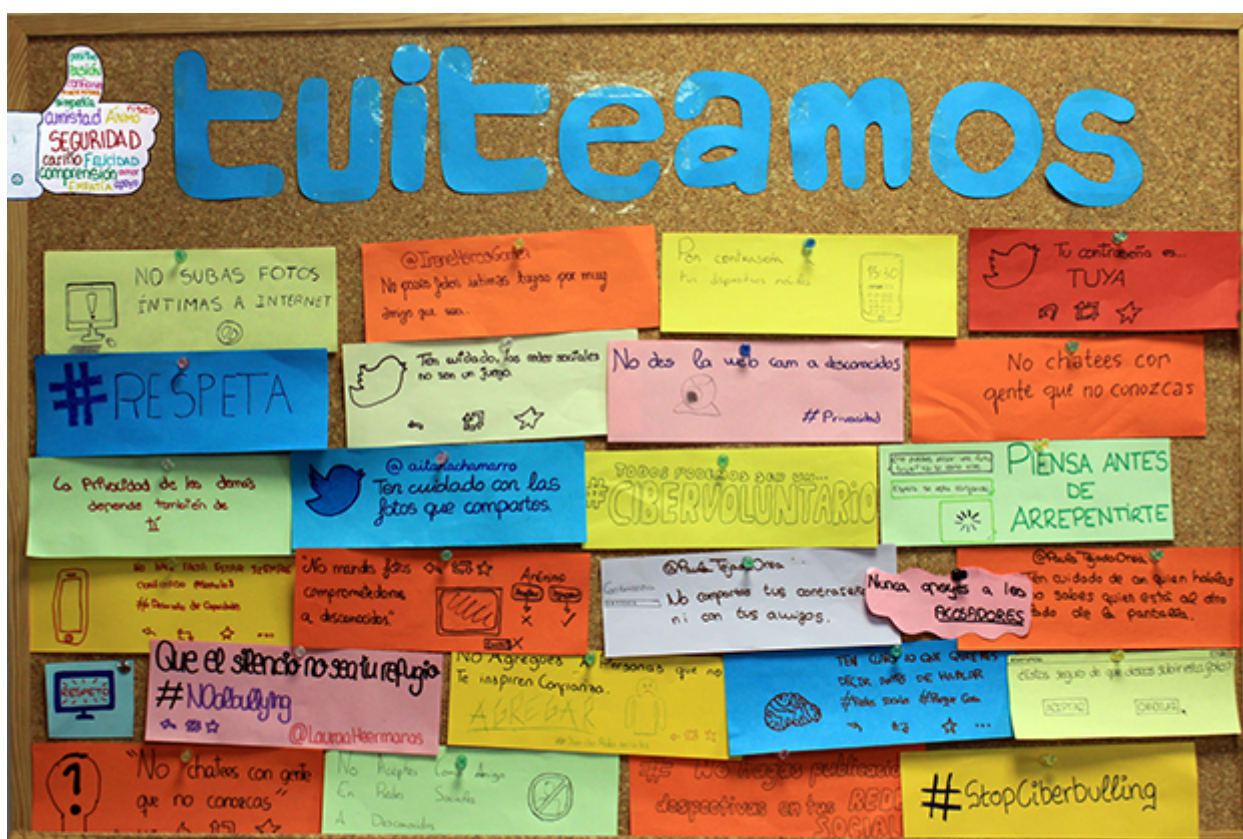 amistad ÁNIMO
SEGURIDAD
cariño FELICIDAD
comprensión amor
EMPATÍA apoyo
tuiteamos
NO SUBAS FOTOS
ÍNTIMAS A INTERNET
No pases fotos íntimas tuyas por muy
amigo que sea..
Pon contraseña
tus dispositivos
15:30
Tu contraseña es...
TUYA
#RESPETA
Ten cuidado, las redes sociales
no son un juego.
No des la web cam a desconocidos
# Privacidad
No chatees con
gente que no conozcas
La Privacidad de los demas
depende también de
tí
@aitanachamarro
Ten cuidado con las
fotos que compartes.
TODOS PODEMOS SER UN...
#CIBERVOLUNTARIO
PIENSA ANTES
DE
ARREPENTIRTE
"No mandes fotos
comprometedoras
a desconocidos"
Anónimo
@Paula Tejado Orea
No compartas tus contraseñas
ni con tus amigos.
Nunca apoyes a los
ACOSADORES
@Paula Tejado Orea
Ten cuidado de con quien hablas
no sabes quien está al otro
lado de la pantalla.
RESPETO
Que el silencio no sea tu refugio
#NOalbullying
@LauraaHeermanas
No Agregues A Personas que no
Te inspiren Confianza.
AGREGAR
TEN CLARO LO QUE QUIERES
DECIR ANTES DE HABLAR
¿Estas seguro de que deseas subir esta foto?
ACEPTAR
CANCELAR
"No chatees con gente
que no conozcas"
No Aceptes Como Amigo
En Redes Sociales
A Desconocidos
# No Hagas publicacio
despectivas en tus REDE
SOCIAL
#StopCiberbulling